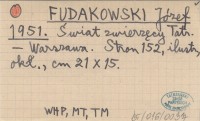 FUDAKOWSKI Józef
1951. Świat zwierzęcy Tatr.
— Warszawa. Stron 152, ilustr.,
okł., cm 21 × 15.
WHP, MT, TM